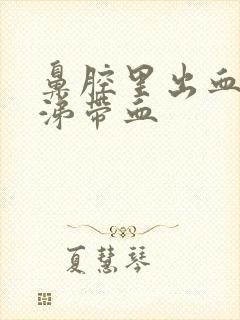 鼻腔里出血
涕带血
夏慧琴